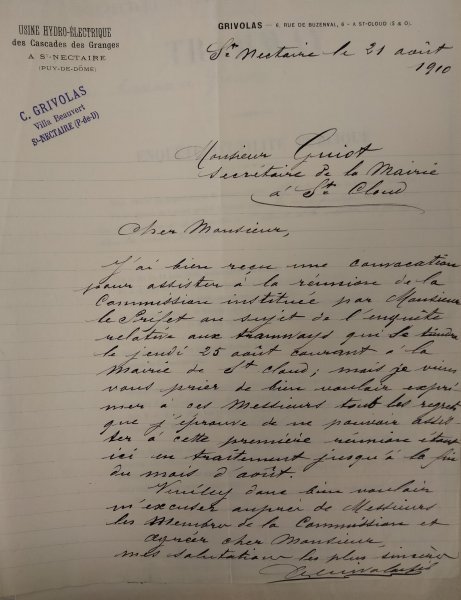 USINE HYDRO-ÉLECTRIQUE
des Cascades des Granges
A St-NECTAIRE
(PUY-DE-DÔME)
GRIVOLAS — 6, RUE DE BUZENVAL, 6 — A ST-CLOUD (S & O).
C. GRIVOLAS
Villa Beauvert
St-NECTAIRE (P-de-D)
St Nectaire le 21 août
1910
Monsieur Guiot
secrétaire de la Mairie
à St Cloud
Cher Monsieur,
J'ai bien reçu une convocation
pour assister à la réunion de la
Commission instituée par Monsieur
le Préfet au sujet de l'enquête
relative aux tramways qui se tiendra
le jeudi 25 août courant à la
Mairie de St Cloud; mais je viens
vous prier de bien vouloir expri
mer à ces Messieurs tout les regrets
que j'éprouve de ne pouvoir assis-
ter à cette première réunion étant
ici en traitement jusqu'à la fin
du mois d'août.
Veuillez donc bien vouloir
m'excuser auprès de Messieurs
les Membres de la Commission et
agréer cher Monsieur,
mes salutations les plus sincères